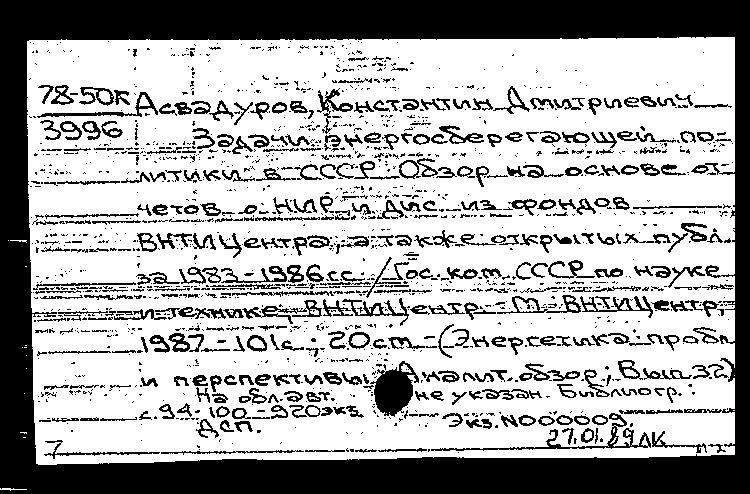 78-50К Асвадуров, Константин Дмитриевич
3996 Задачи энергосберегающей по-
литики в СССР: Обзор на основе от-
четов о НИР и дис. из фондов
ВНТИЦентра, а также открытых публ.
за 1983-1986 гг. / Гос. ком. СССР по науке
и технике, ВНТИЦентр. - М.: ВНТИЦентр,
1987. - 101 с.; 20 см. - (Энергетика: пробл.
и перспективы: Аналит. обзор; Вып. 32)
На обл. авт. не указан. Библиогр.:
с. 94-100. - 920 экз.
ДСП. Экз. N000009.
27.01.89 ЛК
7